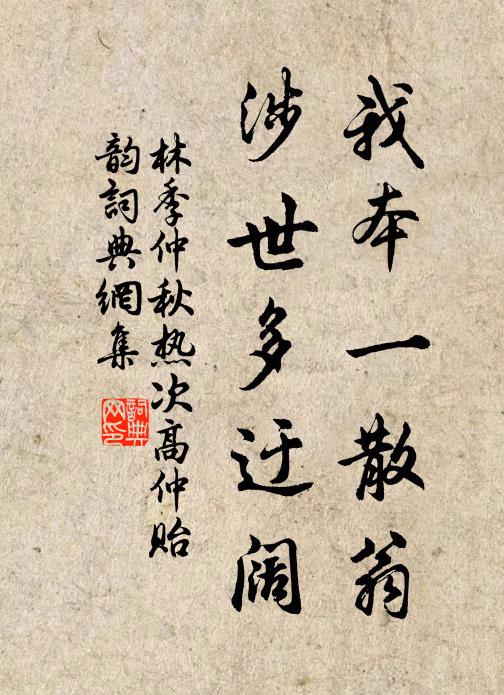 我本一散翁
涉世多迂阔
林季仲秋热次高仲贻
韵詞典網集
詞典网印